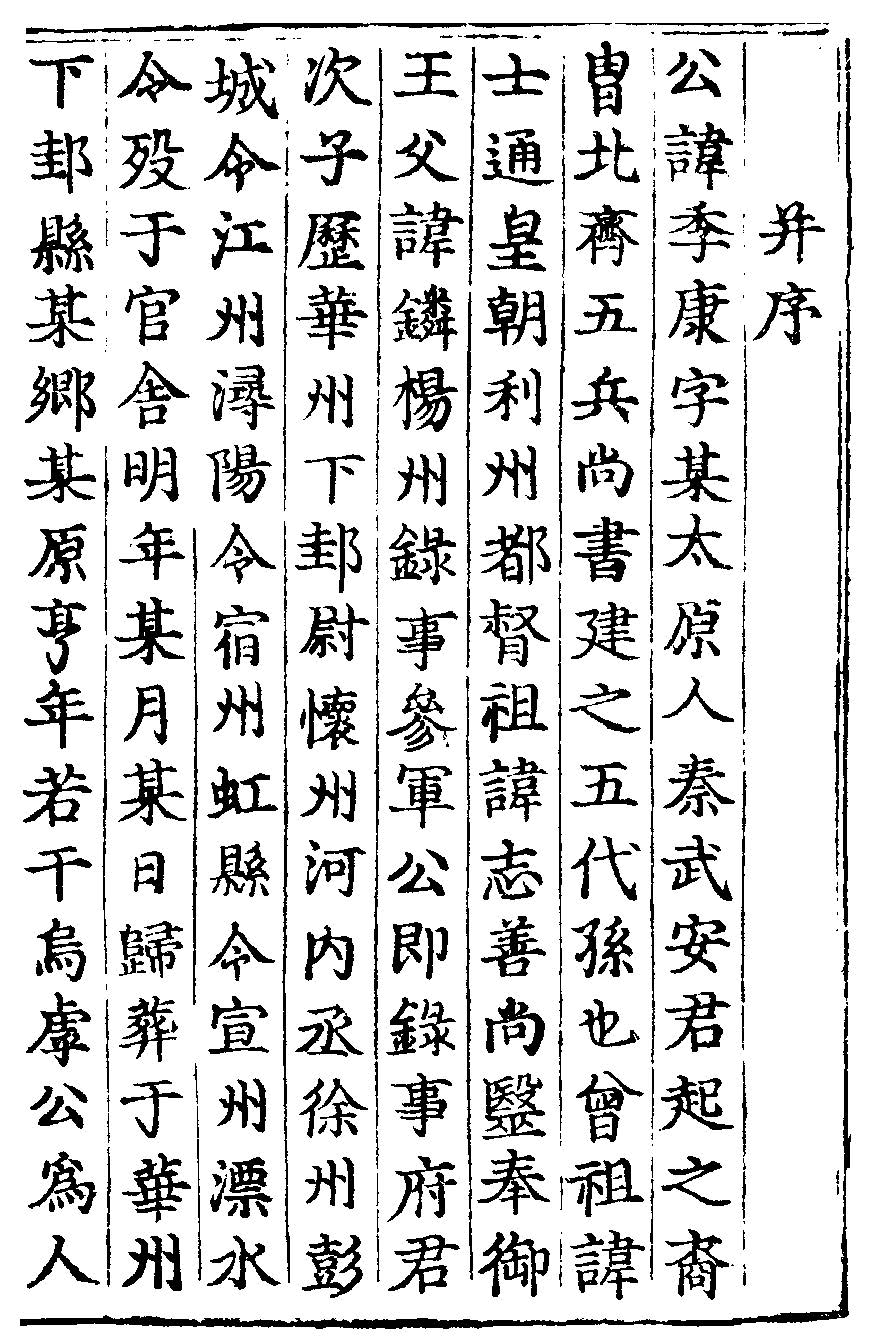 并序
公諱季康字某太原人秦武安君起之裔
胄北齊五兵尚書建之五代孫也曾祖諱
士通皇朝利州都督祖諱志善尚毉奉御
王父諱鏻楊州錄事叅軍公即錄事府君
次子歷華州下邽尉懷州河内丞徐州彭
城令江州潯陽令宿州虹縣令宣州漂水
令歿于官舍明年某月某日歸葬于華州
下邽縣某鄉某原享年若干烏虖公為人